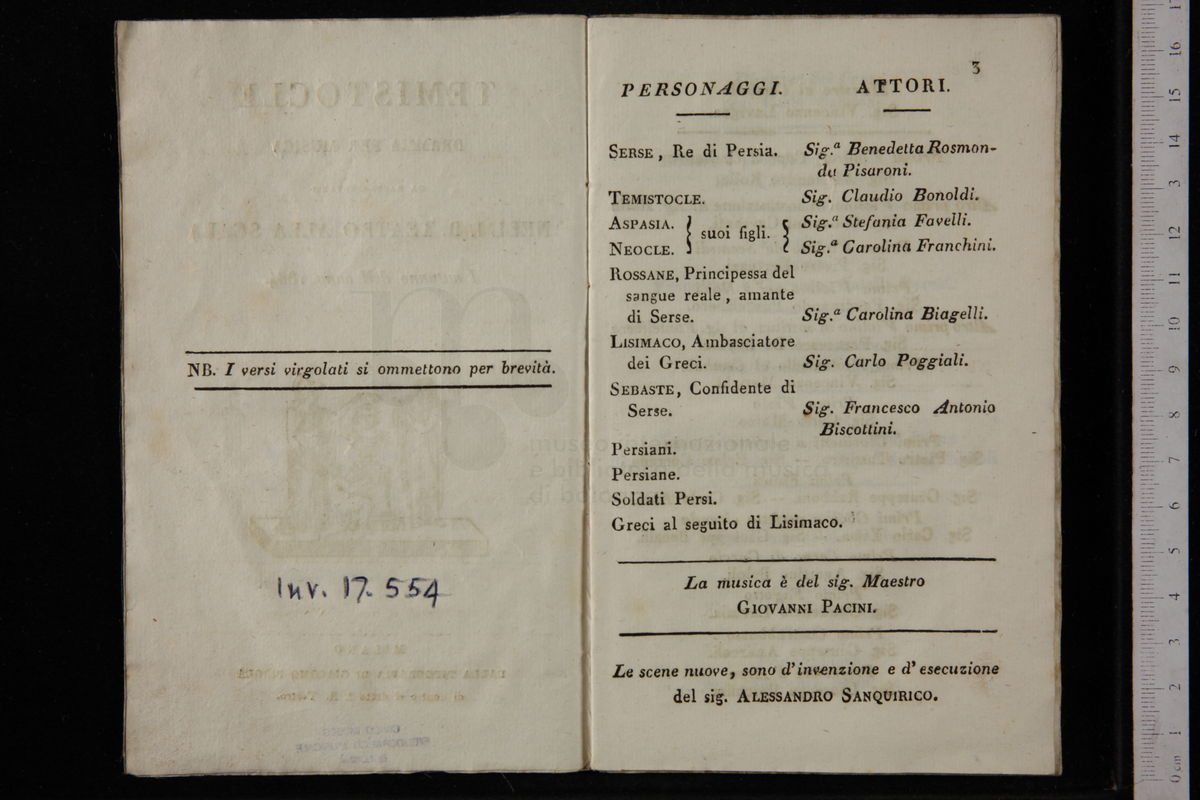 NB. I versi virgolati si ommettono per brevità.
Inv. 17.554
3
PERSONAGGI. ATTORI.
SERSE, Re di Persia. Sig.ª Benedetta Rosmon-
da Pisaroni.
TEMISTOCLE. Sig. Claudio Bonoldi.
ASPASIA. } suoi figli. { Sig.ª Stefania Favelli.
NEOCLE. Sig.ª Carolina Franchini.
ROSSANE, Principessa del
sangue reale, amante
di Serse. Sig.ª Carolina Biagelli.
LISIMACO, Ambasciatore
dei Greci. Sig. Carlo Poggiali.
SEBASTE, Confidente di
Serse. Sig. Francesco Antonio
Biscottini.
Persiani.
Persiane.
Soldati Persi.
Greci al seguito di Lisimaco.
La musica è del sig. Maestro
GIOVANNI PACINI.
Le scene nuove, sono d'invenzione e d'esecuzione
del sig. ALESSANDRO SANQUIRICO.
museo internazionale
e biblioteca della musica
di bologna
0 cm 1 2 3 4 5 6 7 8 9 10 11 12 13 14 15 16 17